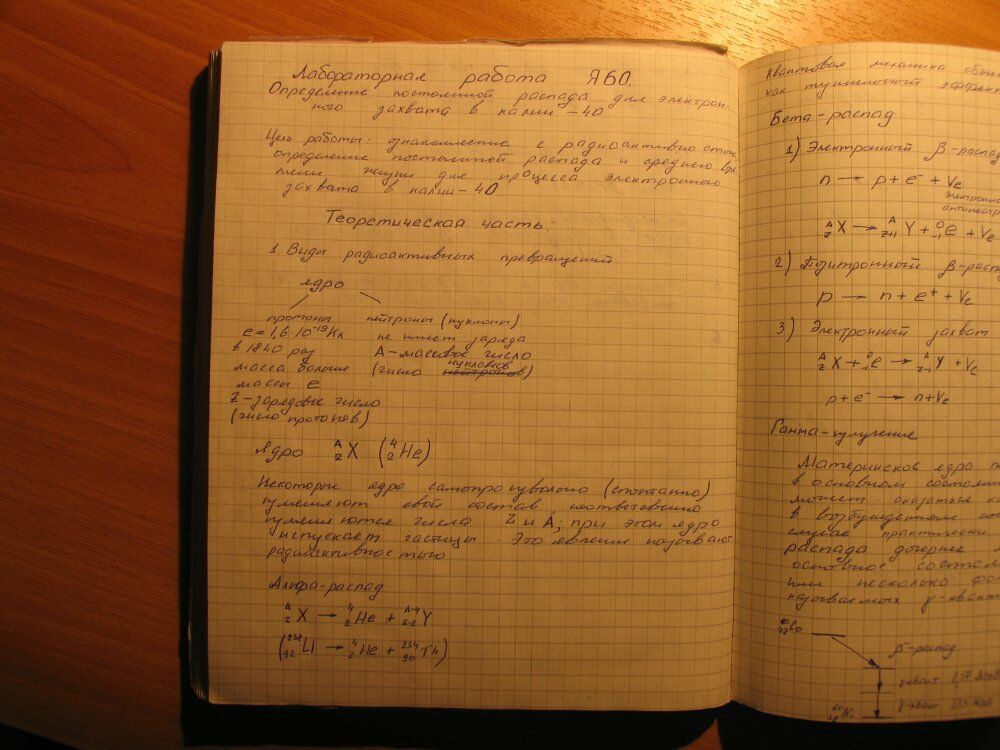 Лабораторная работа Я60.
Определение постоянной распада для электрон-
ного захвата в калии-40
Цель работы: ознакомление с радиоактивностью,
определение постоянной распада и среднего вре-
мени жизни для процесса электронного
захвата в калии-40.
Теоретическая часть:
1. Виды радиоактивных превращений
ядро
протоны нейтроны (нуклоны)
e = 1,6·10⁻¹⁹ Кл не имеет заряда
в 1840 раз А-массовое число
масса больше (число нуклонов)
массы e
Z-зарядовое число
(число протонов)
Ядро ᴬ_Z X (⁴₂He)
Некоторые ядра самопроизвольно (спонтанно)
изменяют свой состав, соответственно
изменяются числа Z и A; при этом ядро
испускает частицы. Это явление называют
радиоактивностью
Альфа-распад
ᴬ_Z X → ⁴₂He + ᴬ⁻⁴_Z-2 Y
(²³⁸₉₂U → ⁴₂He + ²³⁴₉₀Th)
Квантовая механика
как туннельный эффект
Бета-распад
1) Электронный β-распад
n → p + e⁻ + νe
ᴬ_Z X → ᴬ_Z+1 Y + ⁰₋₁e + νe
2) Позитронный β-расп
p → n + e⁺ + νe
3) Электронный захват
ᴬ_Z X + ⁰₋₁e → ᴬ_Z-1 Y + νe
p + e⁻ → n + νe
Гамма-излучение
Материнское ядро
в основном состоянии
может оказаться
в возбужденном
случае практически
распада дочернее
основное состоян
или несколько
называемых γ-квант
⁶⁰₂₇Co
β-распад
γ-квант 1,17
γ-квант 1,33
⁶⁰₂₈Ni